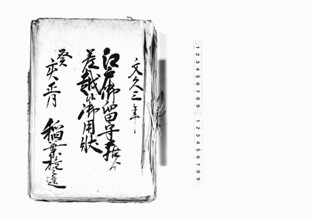 文久三年
江戸御留守居ゟ
差越候御用状
癸亥正月
稲葉
1 2 3 4 5 6 7 8 9 1 2 3 4 5 6 7 8 9